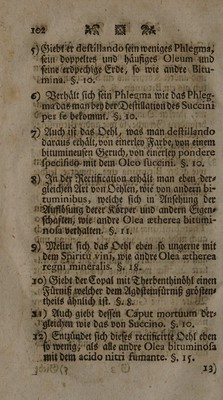 102
5) Giebt er destillando sein weniges Phlegma,
sein doppeltes und häufiges Oleum und
seine erdpechige Erde, so wie andre Bitu-
mina. §. 10.
6) Verhält sich sein Phlegma wie das Phleg-
ma das man bey der Destillation des Succini
per se bekommt. §. 10.
7) Auch ist das Oehl, was man destillando
daraus erhält, von einerley Farbe, von einem
bitumineusen Geruch, von einerley pondere
specifico mit dem Oleo succini. §. 10.
8) In der Rectification erhält man eben der-
gleichen Art von Oehlen, wie von andern bi-
tuminibus, welche sich in Ansehung der
Auflösung derer Körper und andern Eigen-
schaften, wie andre Olea ætherea bitumi-
nosa verhalten. §. 11.
9) Melirt sich das Oehl eben so ungerne mit
dem Spiritu vini, wie andre Olea ætherea
regni mineralis. §. 18.
10) Giebt der Copal mit Therbenthinöhl einen
Fürniß welcher dem Agdsteinfürniß größten
theils ähnlich ist. §. 8.
11) Auch giebt dessen Caput mortuum der-
gleichen wie das von Succino. §. 10.
12) Entzündet sich dieses rectificirte Oehl eben
so wenig, als alle andre Olea bituminosa
mit dem acido nitri fumante. §. 15.
13)